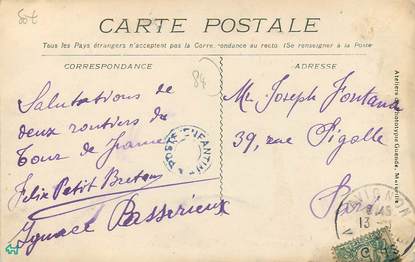 CARTE POSTALE
Tous les Pays étrangers n'acceptent pas la Correspondance au recto (Se renseigner à la Poste)
CORRESPONDANCE
ADRESSE
84
Salutations de
deux routiers du
Tour de France
Felix Petit Breton
Ignace Passerieux
POSTE ENFANTINE
Mr Joseph Fontana
39, rue Pigalle
Paris
AVIGNON
13
Ateliers de Phototypie Guende, Marseille